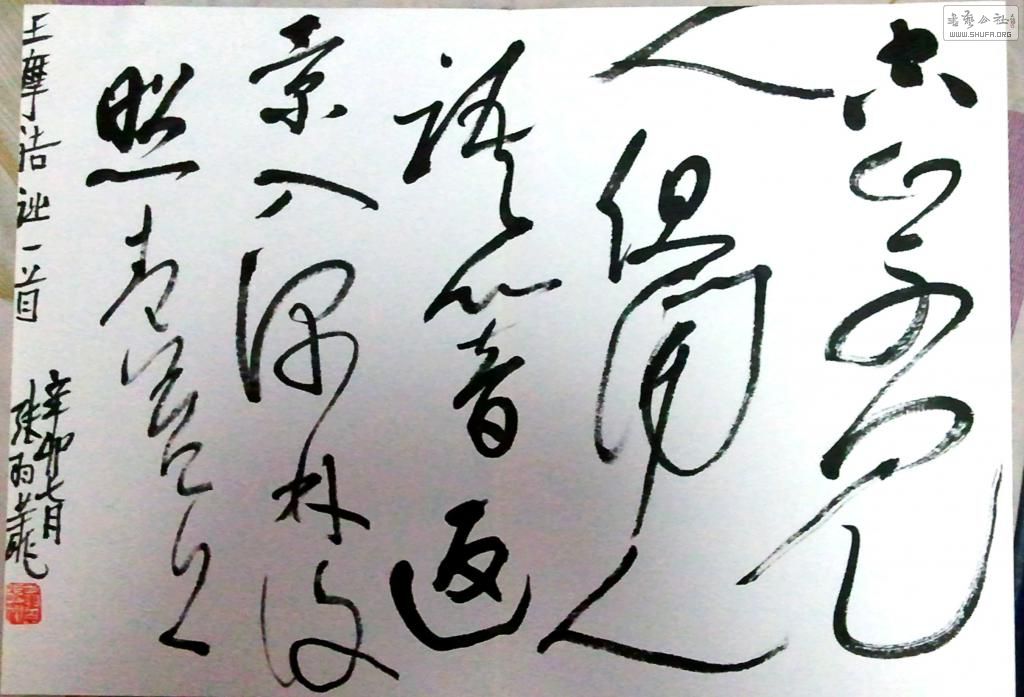 空山不見
人但聞人
語響返
景入深林復
照青苔上
王摩詰詩一首
辛卯七月
書藝公社
WWW.SHUFA.ORG